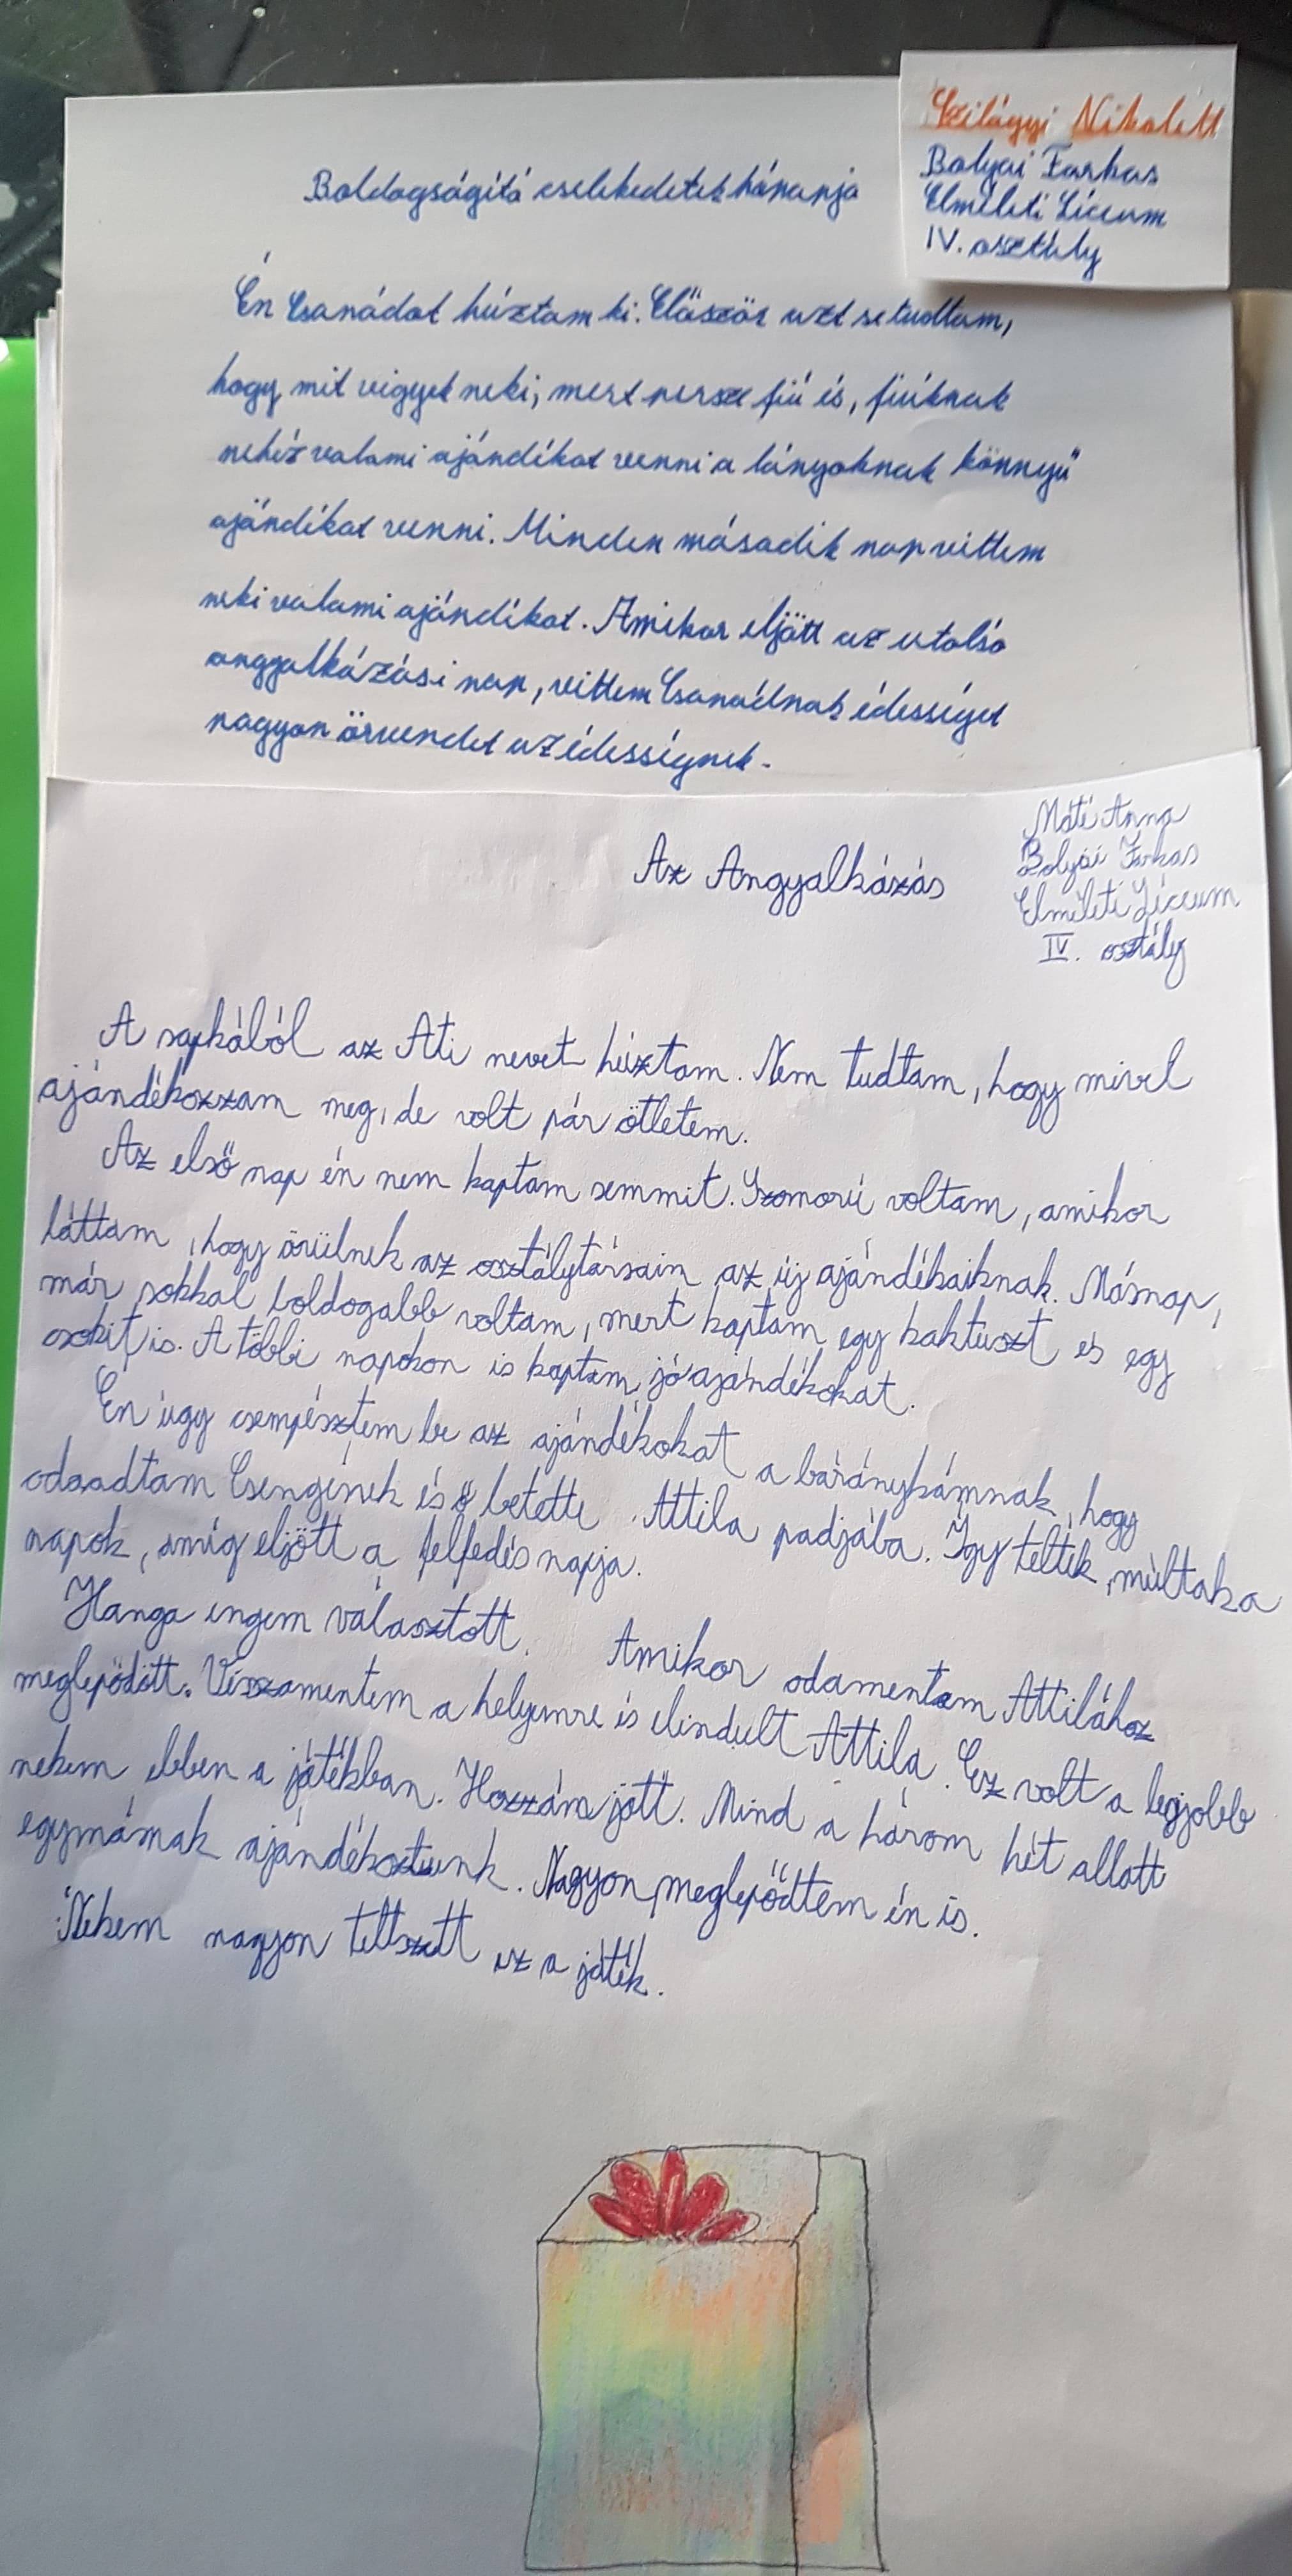 Szilágyi Nikolett
Bolyai Farkas
Elméleti Líceum
IV. osztály
Boldogságító cselekedetek hónapja
Én Csanádot húztam ki. Először azt se tudtam,
hogy mit vigyek neki, mert persze fiú és, fiúknak
nehéz valami ajándékot venni a lányoknak könnyű
ajándékot venni. Minden második nap vittem
neki valami ajándékot. Amikor eljött az utolsó
angyalkázási nap, vittem Csanádnak édességet
nagyon örvendet az édességnek.
Máté Anna
Bolyai Farkas
Elméleti Líceum
IV. osztály
Az Angyalkázás
A sapkából az Ati nevet húztam. Nem tudtam, hogy mivel
ajándékozzam meg, de volt pár ötletem.
Az első nap én nem kaptam semmit. Szomorú voltam, amikor
láttam, hogy örülnek az osztálytársaim az új ajándékaiknak. Másnap,
már sokkal boldogabb voltam, mert kaptam egy kaktuszt és egy
csokit is. A többi napokon is kaptam jó ajándékokat.
Én úgy csempésztem be az ajándékokat a báránykámnak, hogy
odaadtam Csengének és ő betette Attila padjába. Így teltek, múltak a
napok, amíg eljött a felfedés napja.
Hanga engem választott. Amikor odamentem Attilához
meglepődött. Visszamentem a helyemre és elindult Attila. Ez volt a legjobb
nekem ebben a játékban. Hozzám jött. Mind a három hét allatt
egymásnak ajándékoztunk. Nagyon meglepődtem én is.
Nekem nagyon tettszett ez a játék.